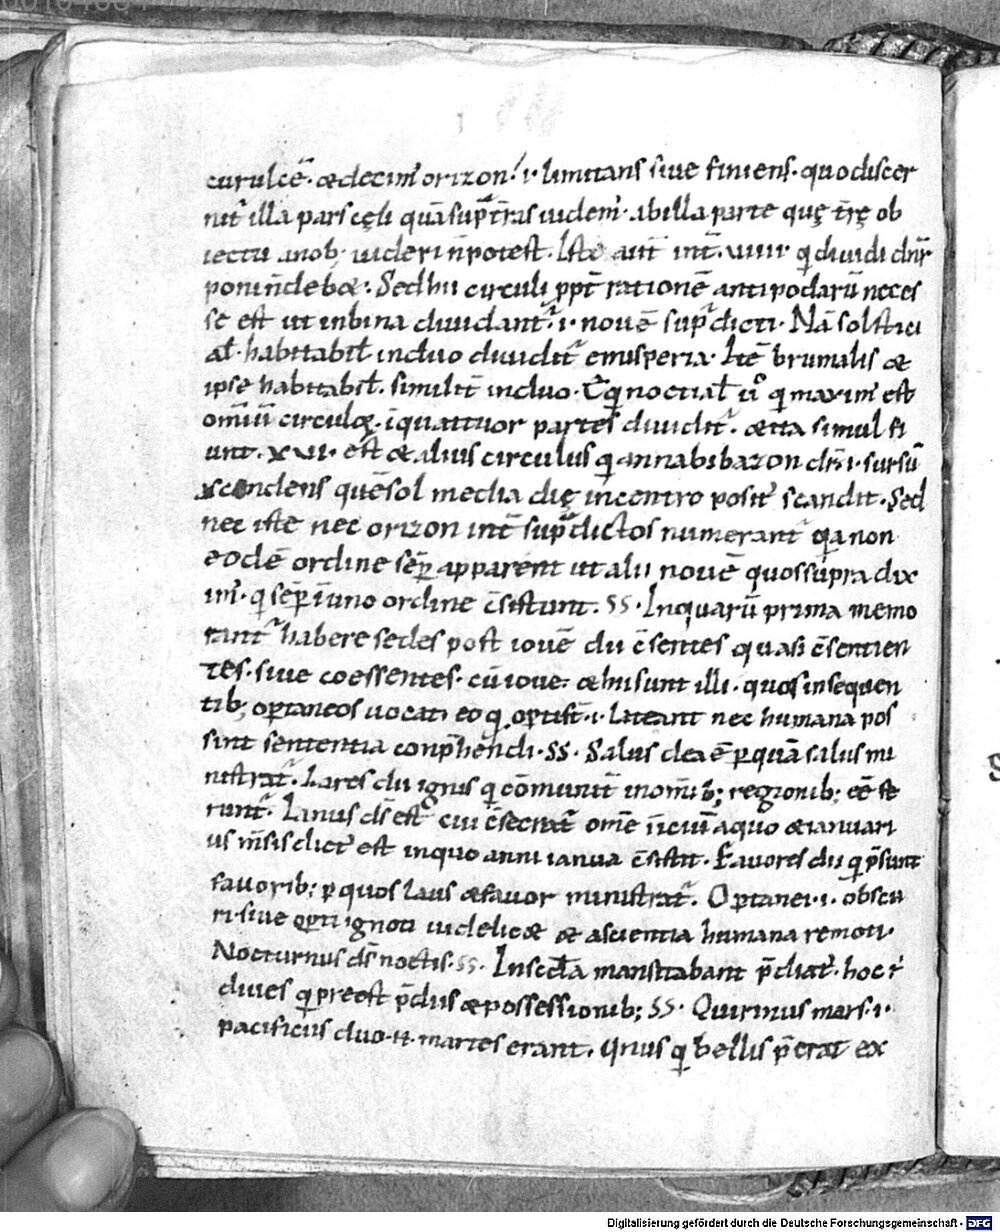 curulcē. & decim' orizon. i. limitans siue finiens. quo discer
nit' illa pars cęli quā sup̄ t̄ras uidem'. ab illa parte quę t̄rę ob
iectu a nob; uideri ñ potest. Iste aut̄ int̄. uiiii. q diuidi dn̄r
poni ñ debæ. Sed hii circuli ppt̄ rationē antipodarū neces
se est ut in bina diuidant'. i. nouē sup̄dicti. Nā solstici
al'. habitabil'. in duo diuidit' emisperia. Itē brumalis &
ipse habitabil'. similit' in duo. Eqinoctial' u° q maxim' est
omniū circuloꝝ. ī quattuor partes diuidit'. & ita simul fi
unt. xxii. est & alius circulus q annabibazon dr̄. i. sursū
scandens quē sol media dię in centro posit' scandit. Sed
nec iste nec orizon int̄ sup̄dictos numerant' qia non
eodē ordine sēp apparent ut alii nouē quos supra dix
im'. q sēp in uno ordine c̄sistunt. SS. In quarū prima memo
rant' habere sedes post iouē dii c̄sentes quasi c̄sentien
tes. siue coessentes. cū ioue. & hi sunt illi. quos in sequen
tib; optaneos uocat. eo q optist. i. lateant nec humana pos
sint sententia conp̄hendi. SS. Salus dea ē p quā salus mi
nistrat'. Lares dii ignis q cōmunit̄ in omib; regionib; eē fe
runt'. Ianus ds̄ est cui c̄secrat' om̄e iniciū a quo & ianuari
us m̄sis dict' est in quo anni ianua c̄sistit. Fauores dii q p̄sunt
fauorib; p quos laus & fauor ministrat'. Optanei. i. obscu
ri siue opti ignoti uidelicæ & a scientia humana remoti.
Nocturnus ds̄ noctis. SS. In sc̄da mansitabant p̄diat'. hoc ē
diues q preest p̄diis & possessionib; SS. Quirinus mars. i.
pacificus duo. n. martes erant. Unus q bellis p̄erat ex